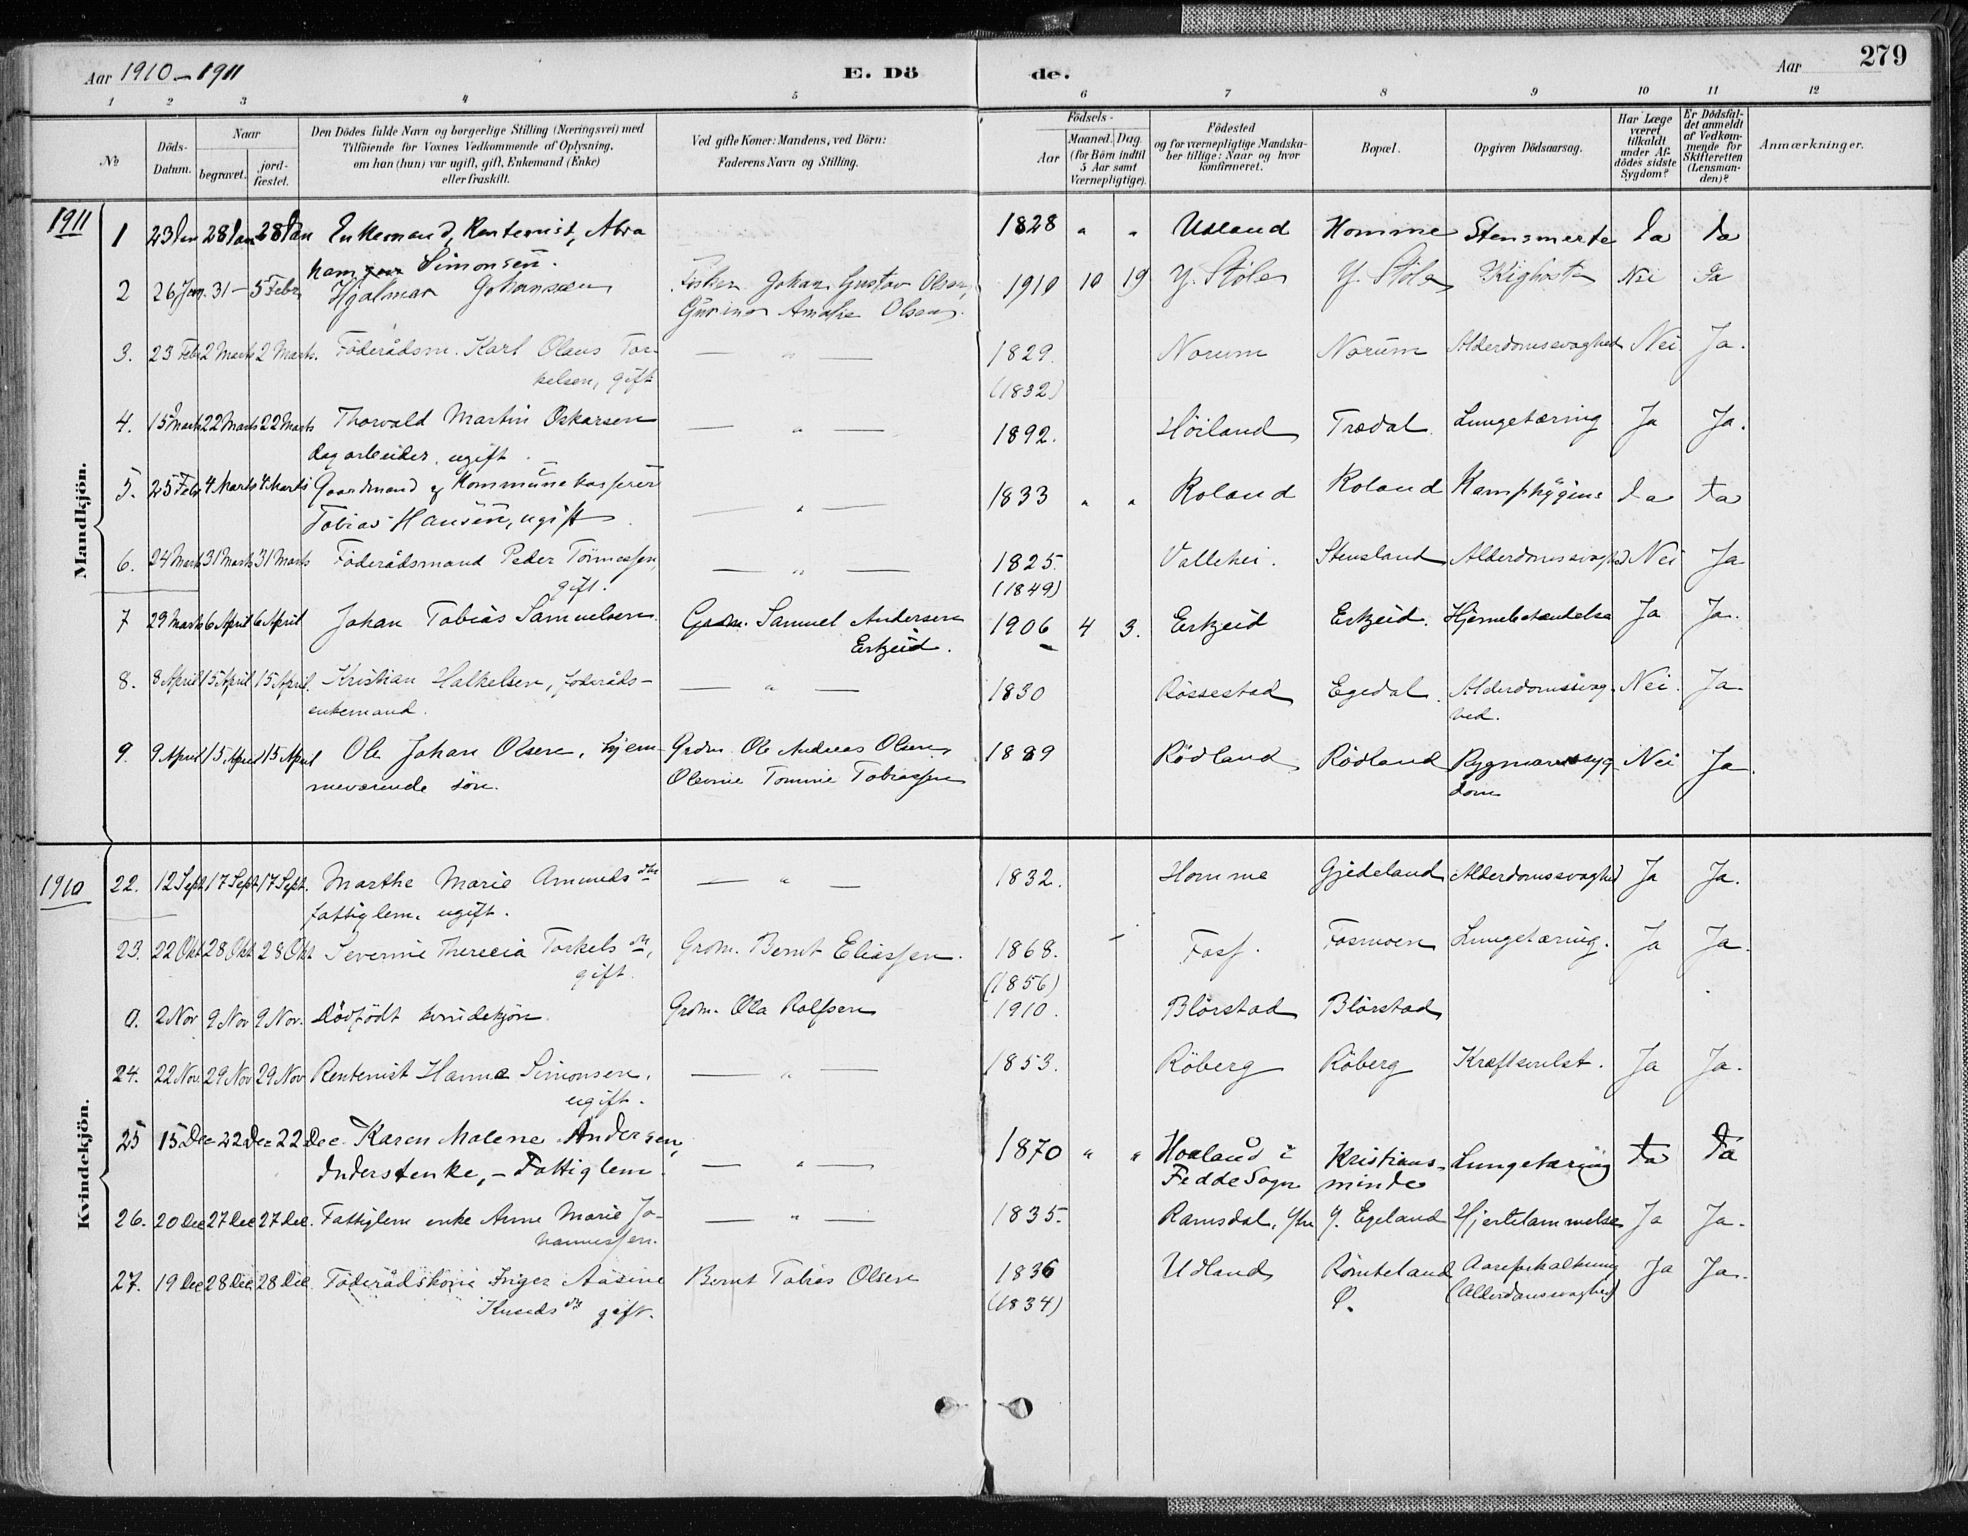 Aar 1910–1911 E. Dö de. Aar 279
1 2 3 4 5 6 7 8 9 10 11 12
No
Döds-Datum.
Naar
begravet.
jordfæstet.
Den Dödes fulde Navn og borgerlige Stilling (Næringsvei) med
Tilföiende for Voxnes Vedkommende af Oplysning,
om han (hun) var ugift, gift, Enkemand (Enke)
eller fraskilt.
Ved gifte Koner: Mandens, ved Börn:
Faderens Navn og Stilling.
Födsels-
Aar
Maaned. Dag.
(for Börn indtil
5 Aar samt
Værnepligtige).
Födested
og for værnepligtige Mandska-
ber tillige: Naar og hvor
konfirmeret.
Bopæl.
Opgiven Dödsaarsag.
Har Læge
været
tilkaldt
under Af-
dödes sidste
Sygdom?
Er Dödsfal-
det anmeldt
af Vedkom-
mende for
Skifteretten
(Lensman-
den)?
Anmærkninger.
Mandkjön.
1911
1 23 Jan 28 Jan 28 Jan Enkemand, Rentenist, Abra 1828 " " Udland Homme Stensmerte Ja Ja
ham Simonsen.
2 26 Jan. 31 – 5 Febr. Hjalmar Johansen Fisker Johan Gustav Olsen, 1910 10 19 Y. Støle Y. Støle Kighoste Nei Ja
Gurine Amalie Olsen.
3. 23 Feb 2 Marts 2 Marts. Föderådsm. Karl Olaus Tor- — " — 1829. Norum Norum Alderdomssvaghed Nei Ja.
kelsen, gift (1832)
4. 15 Marts 22 Marts 22 Marts Thorvald Martin Oskarsen — " — 1892. Höiland Trædal. Lungetæring Ja Ja.
dagarbeider, ugift.
5. 25 Feb 4 Marts 4 Marts Gaardmand og Kommunekasserer 1833 " " Roland Roland Ja Ja
Tobias Hansen, ugift. — " —
6. 24 Marts 31 Marts 31 Marts Föderådsmand Peder Tönnessen, — " — 1825. Vallehei. Stensland Alderdomssvaghed Nei Ja
gift. (1849)
7 29 Marts 6 April 6 April Johan Tobias Samuelsen. Grdm. Samuel Andersen 1906 4 3. Erkjeid Erkjeid. Hjernebetændelse Ja Ja.
Erkjeid.
8. 8 April 15 April 15 April. Kristian Halkelsen, föderåds- — " — 1830 Røssestad Egedal. Alderdomssvag- Nei. Ja.
enkemand. hed.
9. 9 April 15 April 15 April Ole Johan Olsen, hjem- Grdm. Ole Andreas Olsen, 1889 Rödland Rödland Rygmarvssyg- Nei Ja.
meværende sön. Olevine Tomine Tobiassen dom
Kvindekjön.
1910
22. 12 Sept 17 Sept 17 Sept. Marthe Marie Amundsdtr — " — 1832. Homme Gjedeland Alderdomssvaghed Ja Ja.
fattiglem, ugift.
23. 22 Okt 28 Okt 28 Okt Severine Therecia Torkelsdtr, Grdm. Bernt Eliassen. 1868. Foss. Fosmoen Lungetæring. Ja Ja.
gift. (1856)
0. 2 Nov 9 Nov 9 Nov. Dödfödt kvindekjön. Grdm. Ola Rolfsen 1910. Blørstad Blørstad
24. 22 Nov. 29 Nov 29 Nov Rentenist Hanna Simonsen, — " — 1853. Röberg Röberg Kræftsvulst. Ja Ja.
ugift.
25 15 Dec 22 Dec 22 Dec Karen Malene Andersen, 1870 " " Haaland i Kristians- Lungetæring Ja Ja
Inderstenke, – Fattiglem. — " — Fedde Sogn minde
26. 20 Dec 27 Dec 27 dec. Fattiglem enke Anne Marie Jo- — " — 1835. Ramsdal, Ytre Y. Egeland Hjertelammelse Ja Ja.
hannessen.
27. 19 Dec 28 Dec 28 Dec. Föderådskone Inger Aasine Bernt Tobias Olsen 1836 Udland Römteland Aareforkalkning Ja Ja.
Knudsdtr gift. (1834) (Alderdomssvaghed)